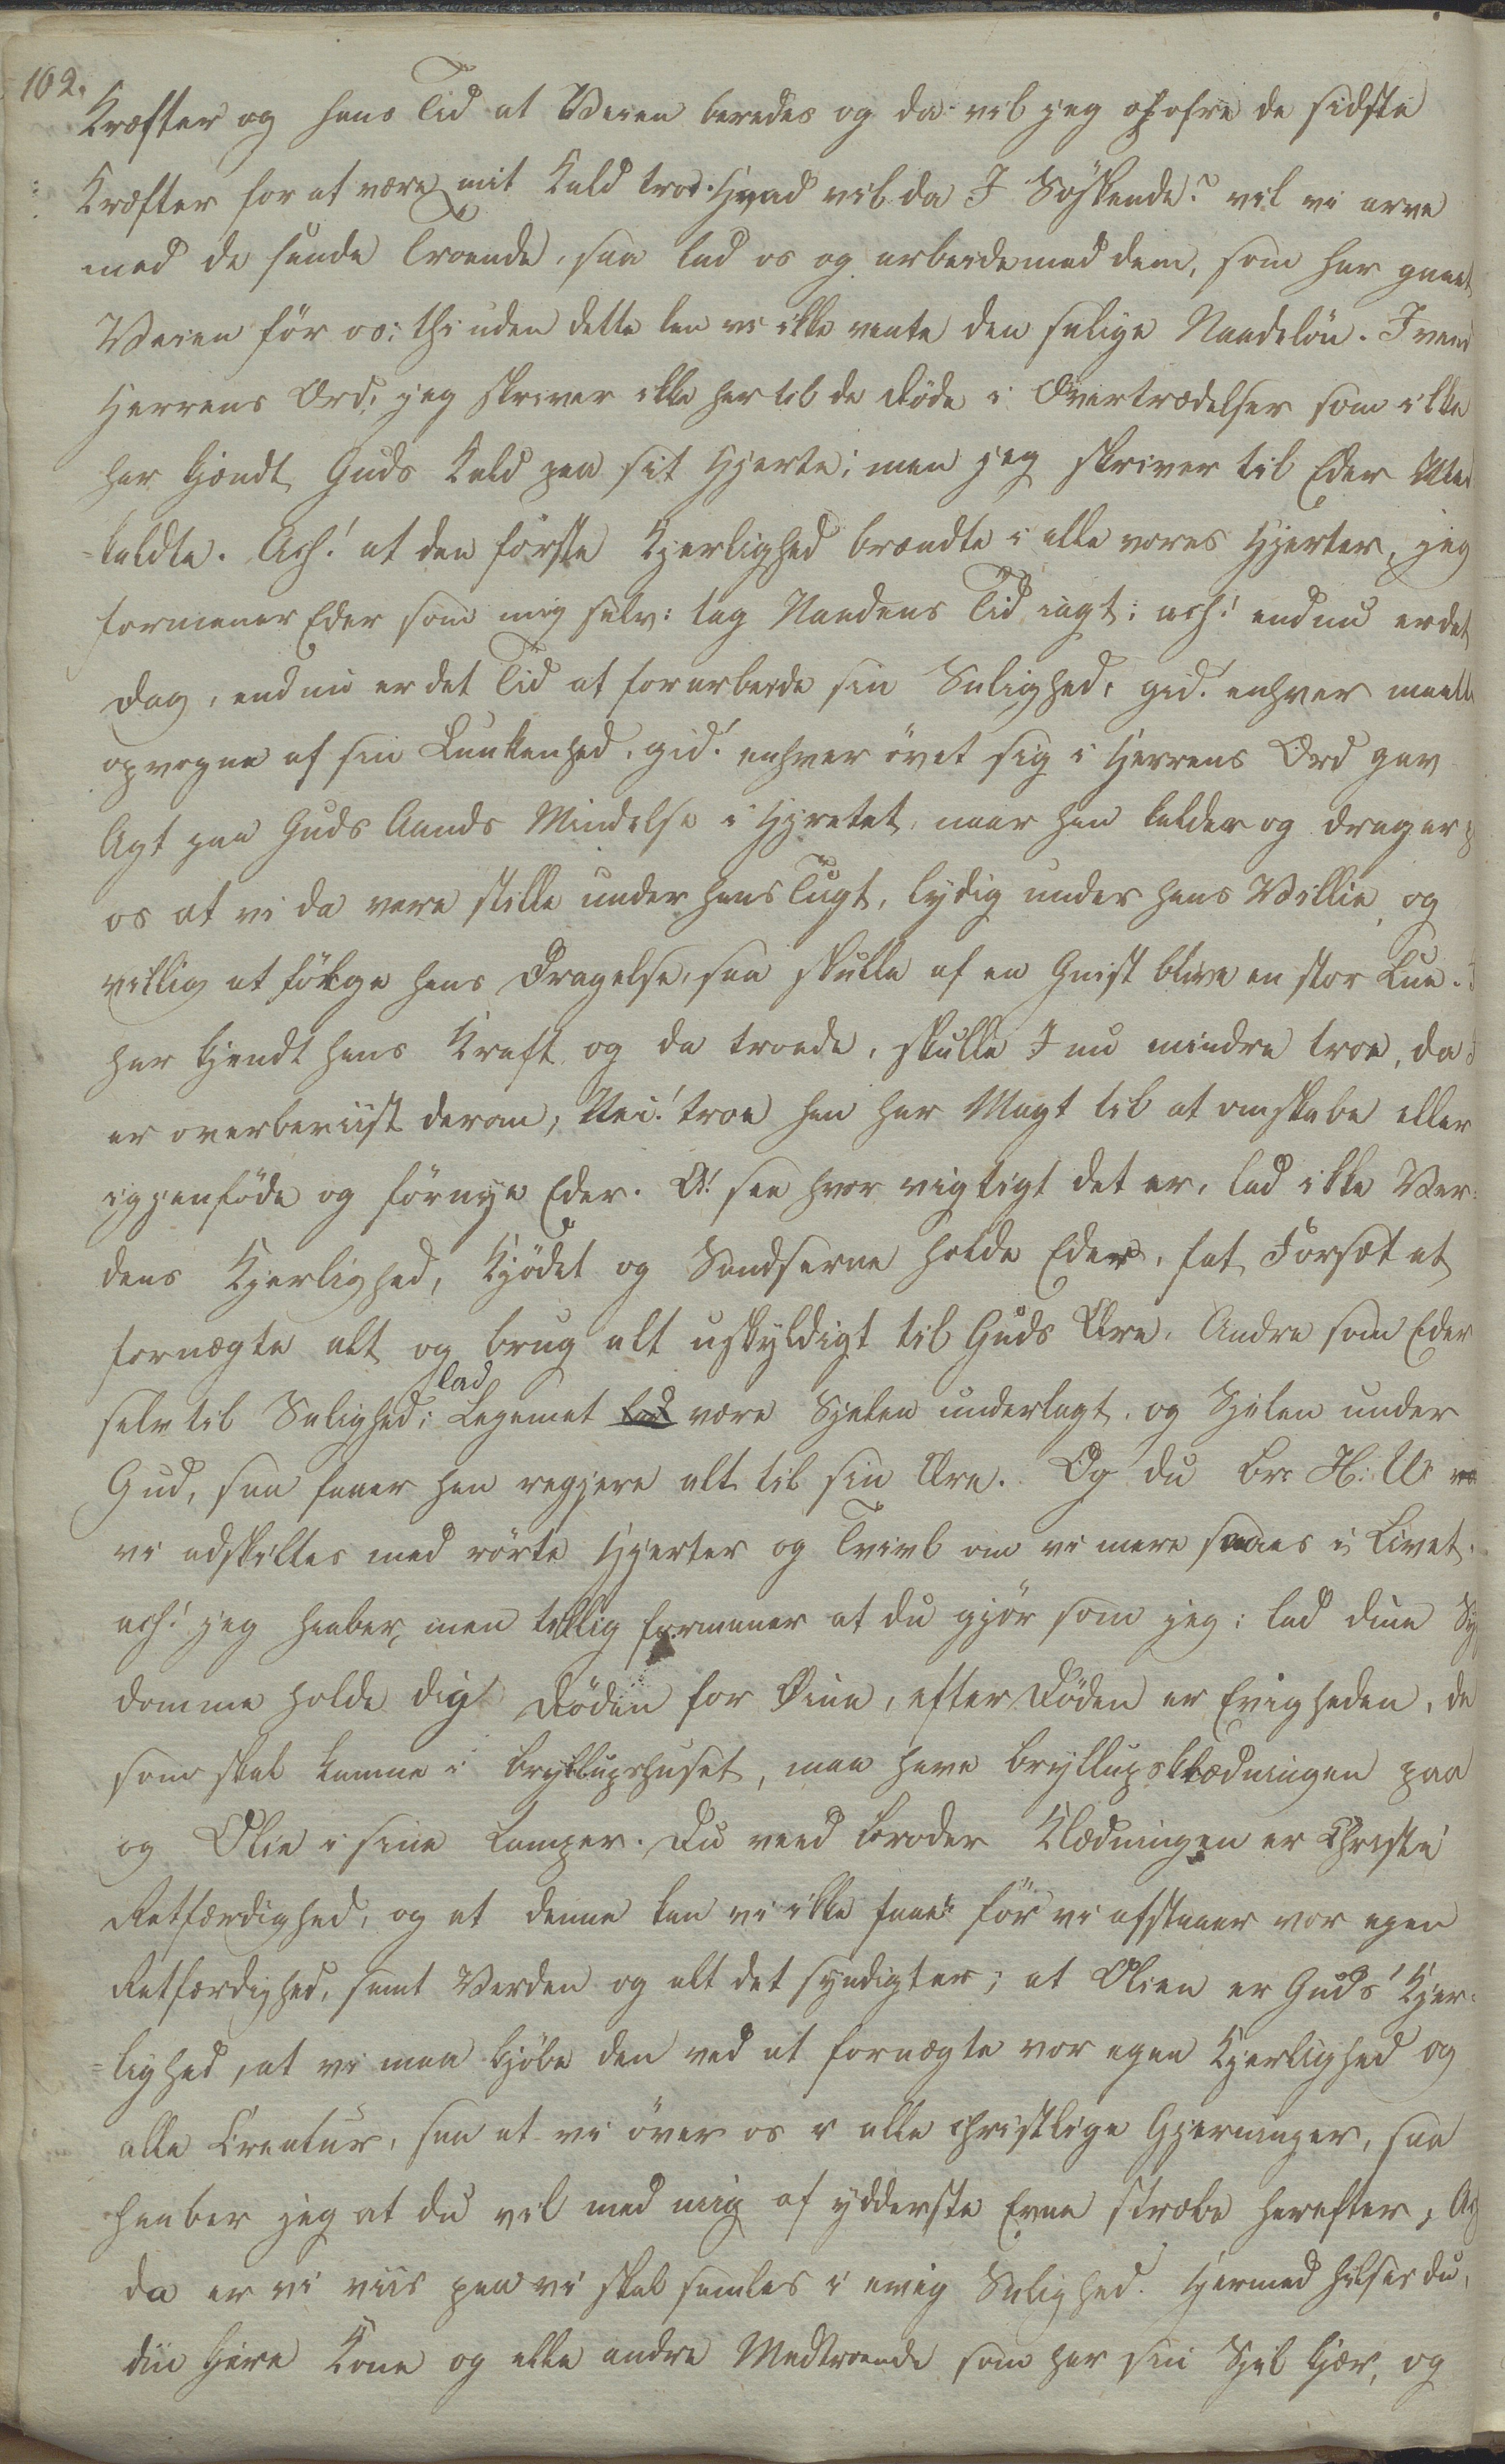 102.
Kræfter og hans Tid at Veien beredes og da vil jeg opofre de sidste
Kræfter for at være mit Kald troe. Hvad vil da I Söskende? vil vi arve
med de sande Troende, saa lad os og arbeide med dem, som har gaaet
Veien för os; thi uden dette kan vi ikke vente den salige Naadelön. I veed
Herrens Ord; jeg skriver ikke her til de döde i Overtrædelser som ikke
har kjendt Guds Kald paa sit Hjerte; men jeg skriver til Eder
=kaldte. Ach! at den förste Kjerlighed brændte i alle vores Hjerter, jeg
formaner Eder som mig selv: tag Naadens Tid iagt; ach! endnu er det
Dag, endnu er det Tid at forarbeide sin Salighed, gid! enhver maatte
opvogne af sin Lunkenhed, gid! enhver övet sig i Herrens Ord gav
Agt paa Guds Aands Mindelse i Hjretet, naar han kalder og drager
os at vi da vare stille under hans Tugt, lydig under hans Villie og
villig at fölge hans Dragelse, saa skulle af en Gnist blive en stor Lue.
har kjendt hans Kraft og da troede, skulle I nu mindre troe, da
er overbeviist derom, Nei! troe han har Magt til at omskabe eller
igjenföde og förnye Eder. O! see hvor vigtigt det er, lad ikke Ver=
dens Kjerlighed, Kjödet og Sandserne holde Eder, fat Forsæt at
fornægte alt og brug alt uskyldigt til Guds Ære, Andre som Eder
selv til Salighed; lad Legemet være Sjelen underlagt, og Sjelen under
Gud, saa faaer han regjere alt til sin Ære. Og du Br: H: U:
vi adskiltes med rörte Hjerter og Tvivl om vi mere saaes i Livet.
ach! jeg haaber, men tillig formaner at du gjör som jeg: lad dine Sy
domme holde dig Döden for Öine, efter Döden er Evigheden, de
som skal komme i Bryllupshuset, maa have Bryllupsklædningen paa
og Olie i sine Lamper. Du veed Broder Klædningen er Christi
Retfærdighed, og at denne kan vi ikke faae för vi afstaaer vor egen
Retfærdighed, samt Verden og alt det syndigter; at Olien er Guds Kjer=
=lighed, at vi maa kjöbe den ved at fornægte vor egen Kjerlighed og
alle Creatur, saa at vi över os i alle christlige Gjerninger, saa
haaber jeg at du vil med mig af ydderste Evne stræbe herefter, Ach
da er vi viis paa vi skal samles i evig Salighed. Hermed hilses du,
din kjere Kone og alle andre Medtroende som har sin Sjel kjær, og